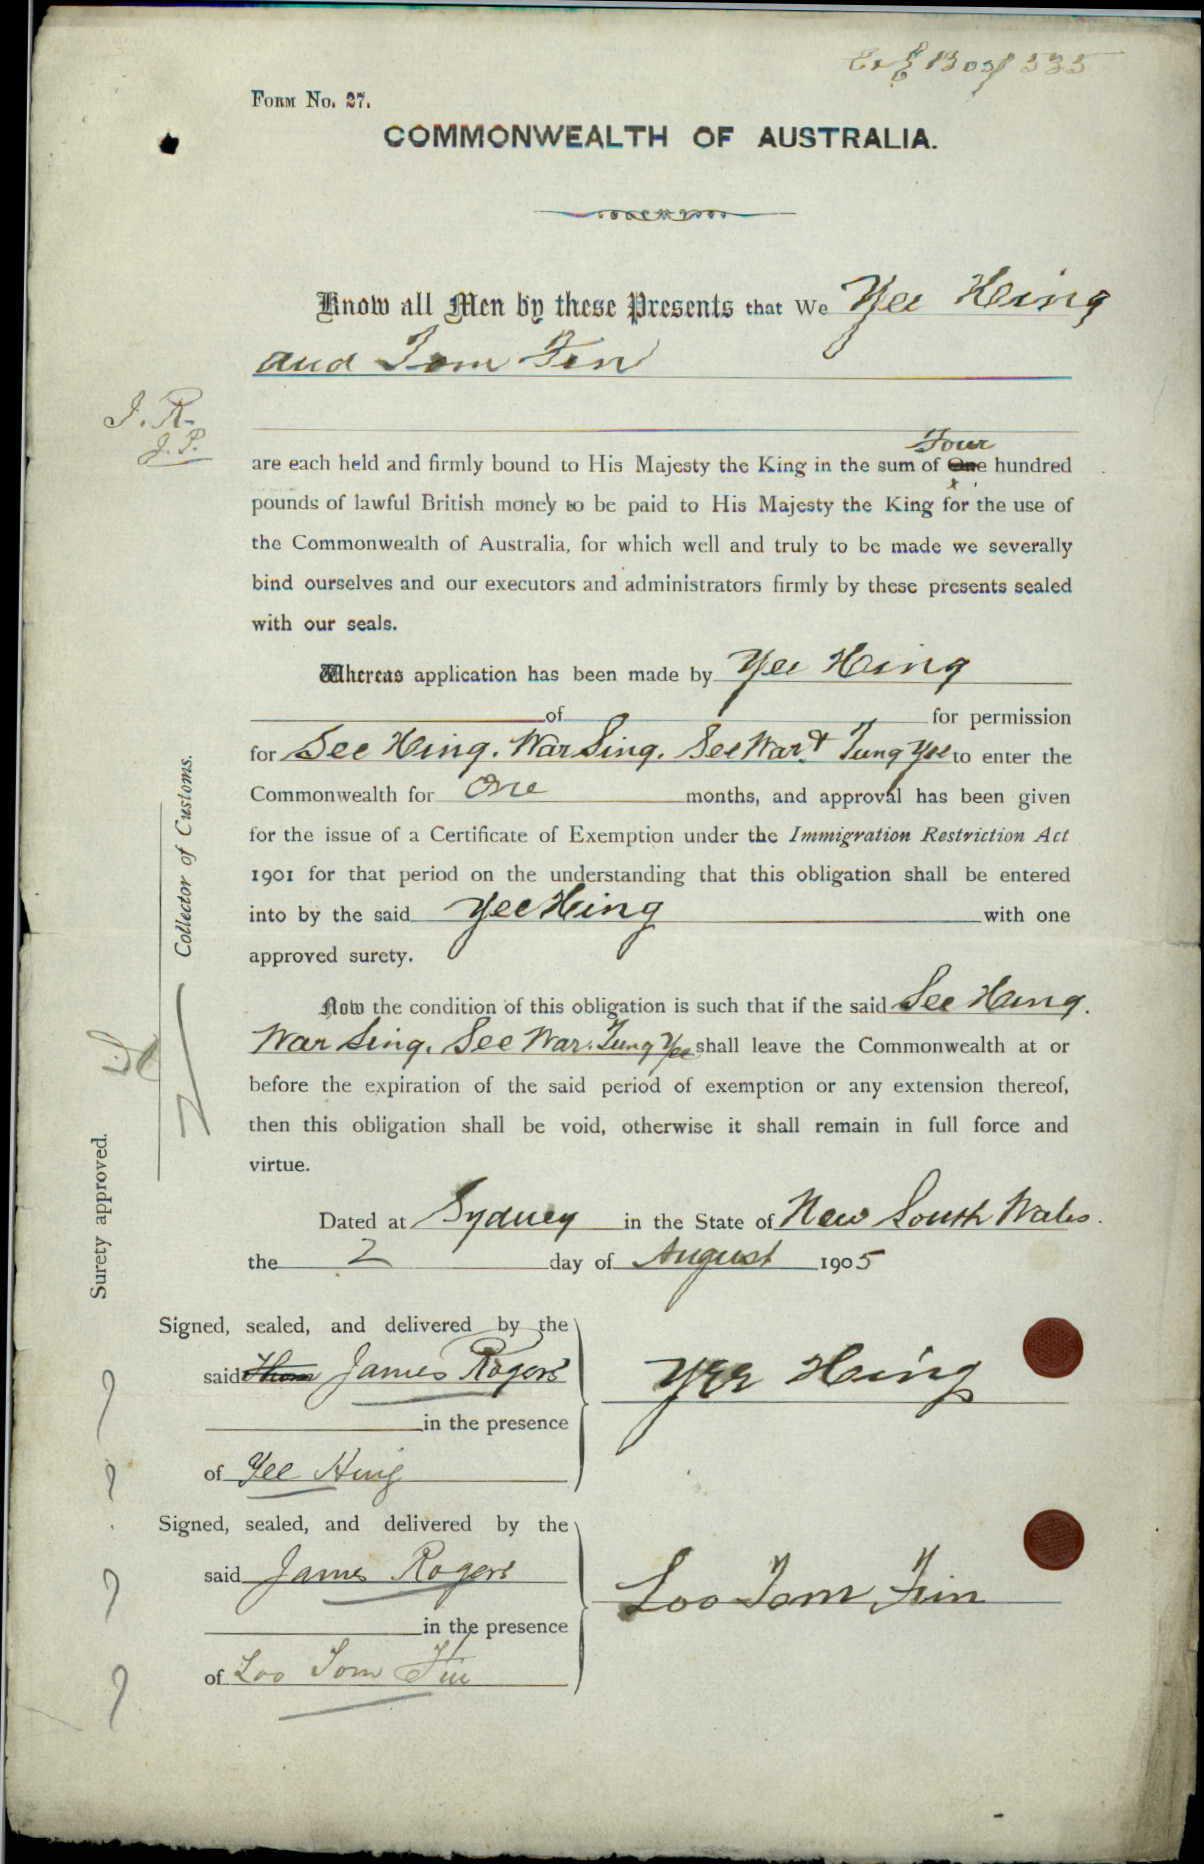 Form No. 27.
COMMONWEALTH OF AUSTRALIA.
Know all Men by these Presents that We Yee Hing
and Tom Fin
J. R.
J. P.
Four
are each held and firmly bound to His Majesty the King in the sum of One hundred
pounds of lawful British money to be paid to His Majesty the King for the use of
the Commonwealth of Australia, for which well and truly to be made we severally
bind ourselves and our executors and administrators firmly by these presents sealed
with our seals.
Whereas application has been made by Yee Hing
of for permission
for See Hing. War Sing. See War. & Tung Yee to enter the
Commonwealth for One months, and approval has been given
for the issue of a Certificate of Exemption under the Immigration Restriction Act
1901 for that period on the understanding that this obligation shall be entered
into by the said Yee Hing with one
approved surety.
Now the condition of this obligation is such that if the said See Hing.
War Sing. See War. Tung Yee shall leave the Commonwealth at or
before the expiration of the said period of exemption or any extension thereof,
then this obligation shall be void, otherwise it shall remain in full force and
virtue.
Dated at Sydney in the State of New South Wales.
the 2 day of August 1905
Surety approved.
Collector of Customs.
Signed, sealed, and delivered by the
said James Rogers
Yee Hing
in the presence
of Yee Hing
Signed, sealed, and delivered by the
said James Rogers
Loo Tom Fin
in the presence
of Loo Tom Fin